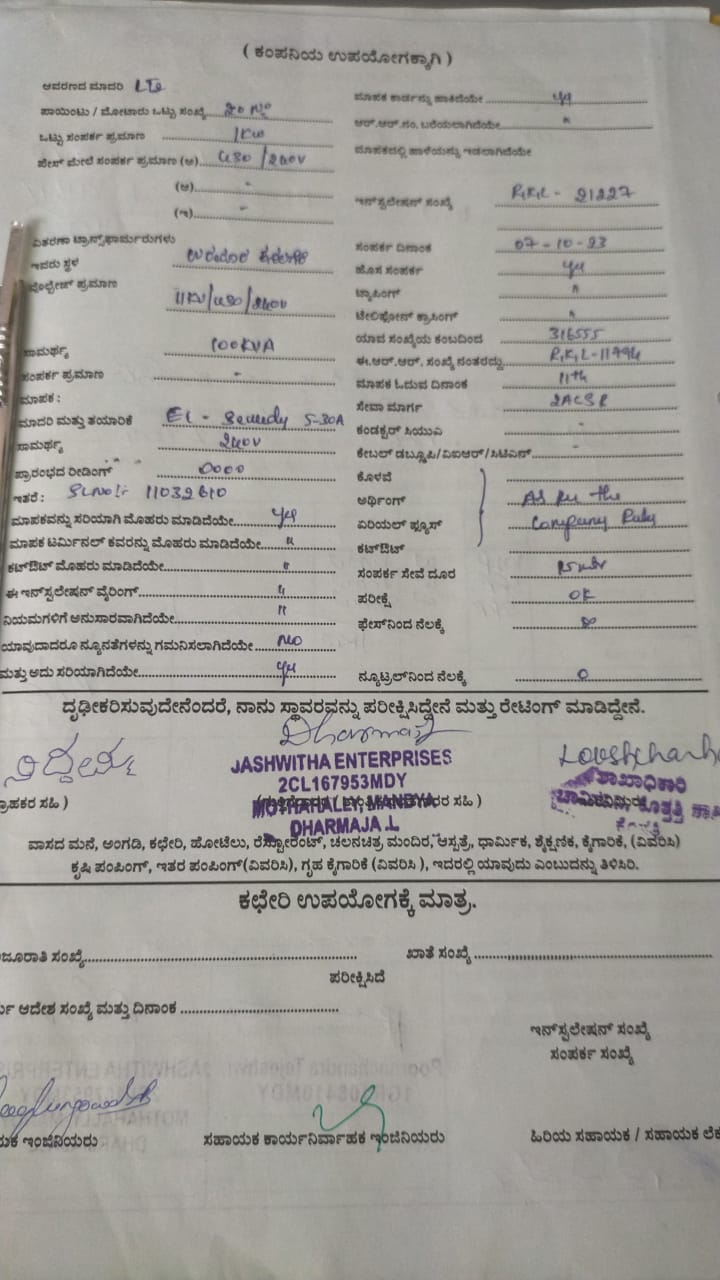 ( ಕಂಪನಿಯ ಉಪಯೋಗಕ್ಕಾಗಿ )
ಆವರಣದ ಮಾದರಿ
ಮಾಪಕ ಕಾರ್ಡನ್ನು ಹಾಕಿದೆಯೇ
ಪಾಯಿಂಟು / ಮೋಟಾರು ಒಟ್ಟು ಸಂಖ್ಯೆ
ಆರ್.ಆರ್.ನಂ. ಬರೆಯಲಾಗಿದೆಯೇ "
ಒಟ್ಟು ಸಂಪರ್ಕ ಪ್ರಮಾಣ 1KW
ಮಾಪಕದಲ್ಲಿ ಹಾಳೆಯನ್ನು ಇಡಲಾಗಿದೆಯೇ
ಪೇಸ್ ಮೇಲೆ ಸಂಪರ್ಕ ಪ್ರಮಾಣ (ಅ) 430/240V
(ಆ) -
ಇನ್‌ಸ್ಟಲೇಷನ್ ಸಂಖ್ಯೆ R.K.L - 21227
(ಇ) -
ವಿತರಣಾ ಟ್ರಾನ್ಸ್‌ಫಾರ್ಮರುಗಳು
ಸಂಪರ್ಕ ದಿನಾಂಕ 07-10-23
ಇವರು ಸ್ಥಳ
ಹೊಸ ಸಂಪರ್ಕ
ವೋಲ್ಟೇಜ್ ಪ್ರಮಾಣ 11KV/430/240V
ಟ್ಯಾಪಿಂಗ್ "
ಟೆಲಿಫೋನ್ ಕ್ರಾಸಿಂಗ್ "
ಯಾವ ಸಂಖ್ಯೆಯ ಕಂಬದಿಂದ 316555
ಸಾಮರ್ಥ್ಯ 100KVA
ಈ.ಆರ್.ಆರ್. ಸಂಖ್ಯೆ ನಂತರದ್ದು R.K.L-11994
ಸಂಪರ್ಕ ಪ್ರಮಾಣ -
ಮಾಪಕ ಓದುವ ದಿನಾಂಕ 11th
ಮಾಪಕ :
ಸೇವಾ ಮಾರ್ಗ 2ACSR
ಮಾದರಿ ಮತ್ತು ತಯಾರಿಕೆ 5-30A
ಕಂಡಕ್ಟರ್ ಸಿಯುವಿ -
ಸಾಮರ್ಥ್ಯ 240V
ಕೇಬಲ್ ಡಬ್ಲ್ಯೂಪಿ/ವಿಐಆರ್/ಸಿಟಿಎಸ್ -
ಪ್ರಾರಂಭದ ರೀಡಿಂಗ್ 0000
ಕೊಳವೆ
ಇತರೆ : SLNo:- 11032610
ಅರ್ಥಿಂಗ್ As per the
ಮಾಪಕವನ್ನು ಸರಿಯಾಗಿ ಮೊಹರು ಮಾಡಿದೆಯೇ
ಏರಿಯಲ್ ಫ್ಯೂಸ್ Company Rules
ಮಾಪಕ ಟರ್ಮಿನಲ್ ಕವರನ್ನು ಮೊಹರು ಮಾಡಿದೆಯೇ "
ಕಟ್‌ಔಟ್
ಕಟ್‌ಔಟ್ ಮೊಹರು ಮಾಡಿದೆಯೇ "
ಸಂಪರ್ಕ ಸೇವೆ ದೂರ
ಈ ಇನ್‌ಸ್ಟಲೇಷನ್ ವೈರಿಂಗ್ "
ಪರೀಕ್ಷೆ OK
ನಿಯಮಗಳಿಗೆ ಅನುಸಾರವಾಗಿದೆಯೇ "
ಫೇಸ್‌ನಿಂದ ನೆಲಕ್ಕೆ ∞
ಯಾವುದಾದರೂ ನ್ಯೂನತೆಗಳನ್ನು ಗಮನಿಸಲಾಗಿದೆಯೇ NO
ಮತ್ತು ಅದು ಸರಿಯಾಗಿದೆಯೇ
ನ್ಯೂಟ್ರಲ್‌ನಿಂದ ನೆಲಕ್ಕೆ 0
ದೃಢೀಕರಿಸುವುದೇನೆಂದರೆ, ನಾನು ಸ್ಥಾವರವನ್ನು ಪರೀಕ್ಷಿಸಿದ್ದೇನೆ ಮತ್ತು ರೇಟಿಂಗ್ ಮಾಡಿದ್ದೇನೆ.
JASHWITHA ENTERPRISES
2CL167953MDY
ರಾಹಕರ ಸಹಿ )
MOTHAHALLY, MANDYA
ರರ ಸಹಿ )
ಶಾಖಾಧಿಕಾರಿ
DHARMAJA.L
ವಾಸದ ಮನೆ, ಅಂಗಡಿ, ಕಛೇರಿ, ಹೋಟೆಲು, ರೆಸ್ಟೋರೆಂಟ್, ಚಲನಚಿತ್ರ ಮಂದಿರ, ಆಸ್ಪತ್ರೆ, ಧಾರ್ಮಿಕ, ಶೈಕ್ಷಣಿಕ, ಕೈಗಾರಿಕೆ, (ವಿವರಿಸಿ)
ಕೃಷಿ ಪಂಪಿಂಗ್, ಇತರ ಪಂಪಿಂಗ್(ವಿವರಿಸಿ), ಗೃಹ ಕೈಗಾರಿಕೆ (ವಿವರಿಸಿ ), ಇದರಲ್ಲಿ ಯಾವುದು ಎಂಬುದನ್ನು ತಿಳಿಸಿರಿ.
ಕಛೇರಿ ಉಪಯೋಗಕ್ಕೆ ಮಾತ್ರ.
ಜೂರಾತಿ ಸಂಖ್ಯೆ
ಖಾತೆ ಸಂಖ್ಯೆ
ಪರೀಕ್ಷಿಸಿದೆ
ರ್ಯ ಆದೇಶ ಸಂಖ್ಯೆ ಮತ್ತು ದಿನಾಂಕ
ಇನ್‌ಸ್ಟಲೇಷನ್ ಸಂಖ್ಯೆ
ಸಂಪರ್ಕ ಸಂಖ್ಯೆ
ಯಕ ಇಂಜಿನಿಯರು
ಸಹಾಯಕ ಕಾರ್ಯನಿರ್ವಾಹಕ ಇಂಜಿನಿಯರು
ಹಿರಿಯ ಸಹಾಯಕ / ಸಹಾಯಕ ಲೆಕ